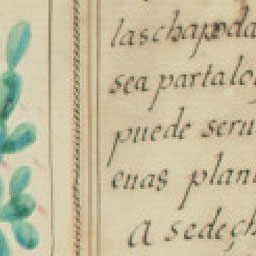 laschapoda
sea partalo
puede seru
enas plan
A sedech